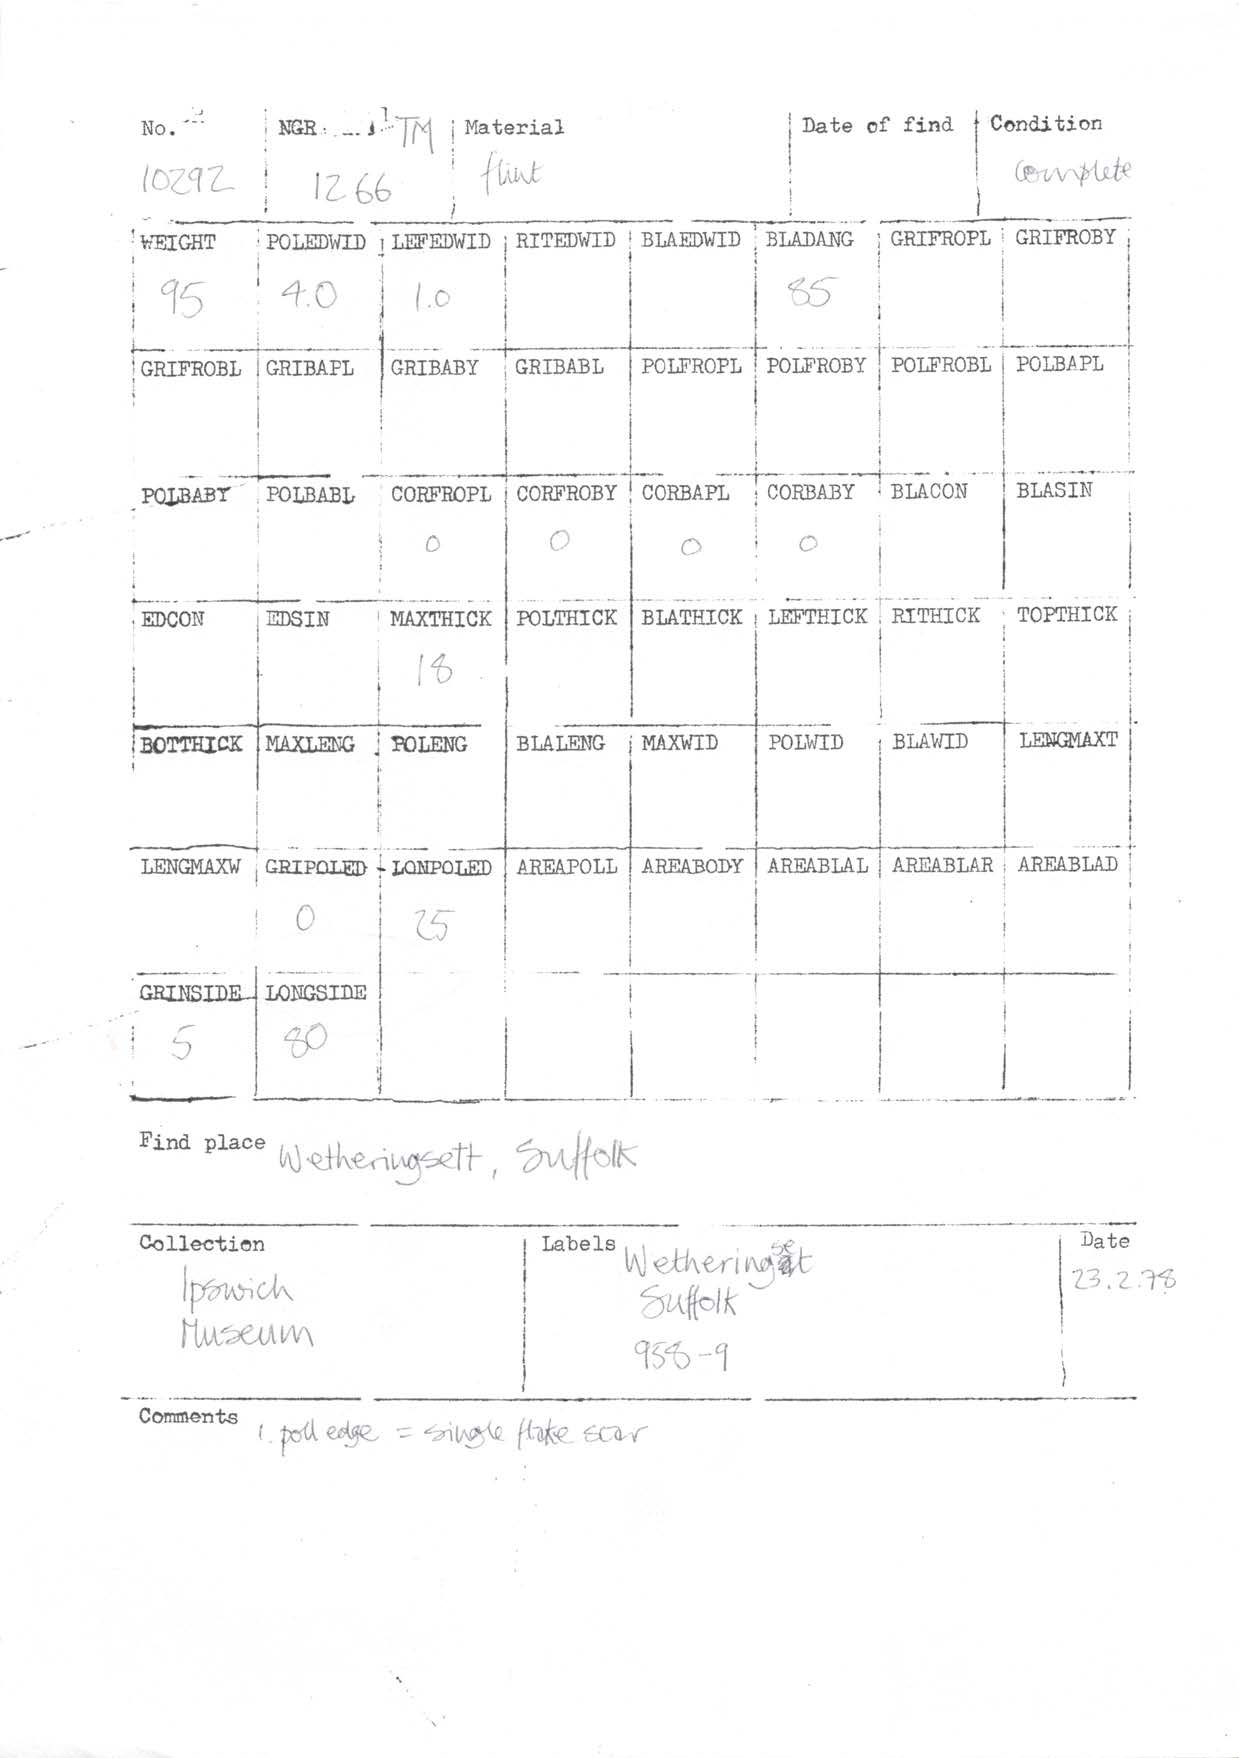 No. NGR TM Material Date of find Condition
10292 1266 flint complete
WEIGHT POLEDWID LEFEDWID RITEDWID BLAEDWID BLADANG GRIFROPL GRIFROBY
95 4.0 1.0 85
GRIFROBL GRIBAPL GRIBABY GRIBABL POLFROPL POLFROBY POLFROBL POLBAPL
POLBABY POLBABL CORFROPL CORFROBY CORBAPL CORBABY BLACON BLASIN
0 0 0 0
EDCON EDSIN MAXTHICK POLTHICK BLATHICK LEFTHICK RITHICK TOPTHICK
18
BOTTHICK MAXLENG POLENG BLALENG MAXWID POLWID BLAWID LENGMAXT
LENGMAXW GRIPOLED LONPOLED AREAPOLL AREABODY AREABLAL AREABLAR AREABLAD
0 25
GRINSIDE LONGSIDE
5 80
Find place Wetheringsett, Suffolk
Collection Labels Wetheringset Date
Ipswich Suffolk 23.2.78
Museum 958-9
Comments 1. poll edge = single flake scar